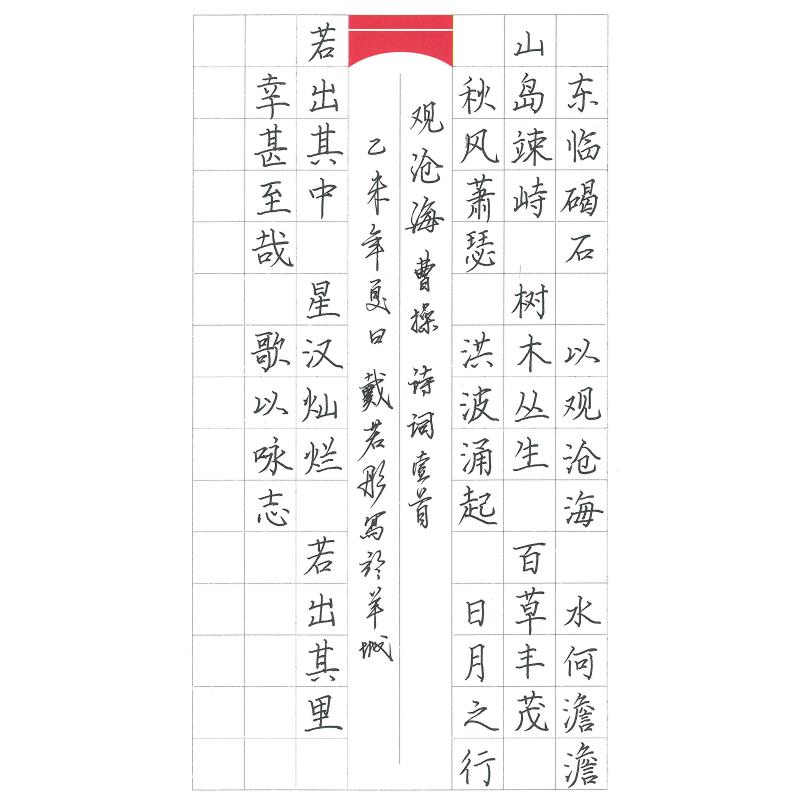 东临碣石 以观沧海 水何澹澹
山岛竦峙 树木丛生 百草丰茂
秋风萧瑟 洪波涌起 日月之行
观沧海 曹操 诗词壹首
乙未年夏日 戴若彤写于羊城
若出其中 星汉灿烂 若出其里
幸甚至哉 歌以咏志